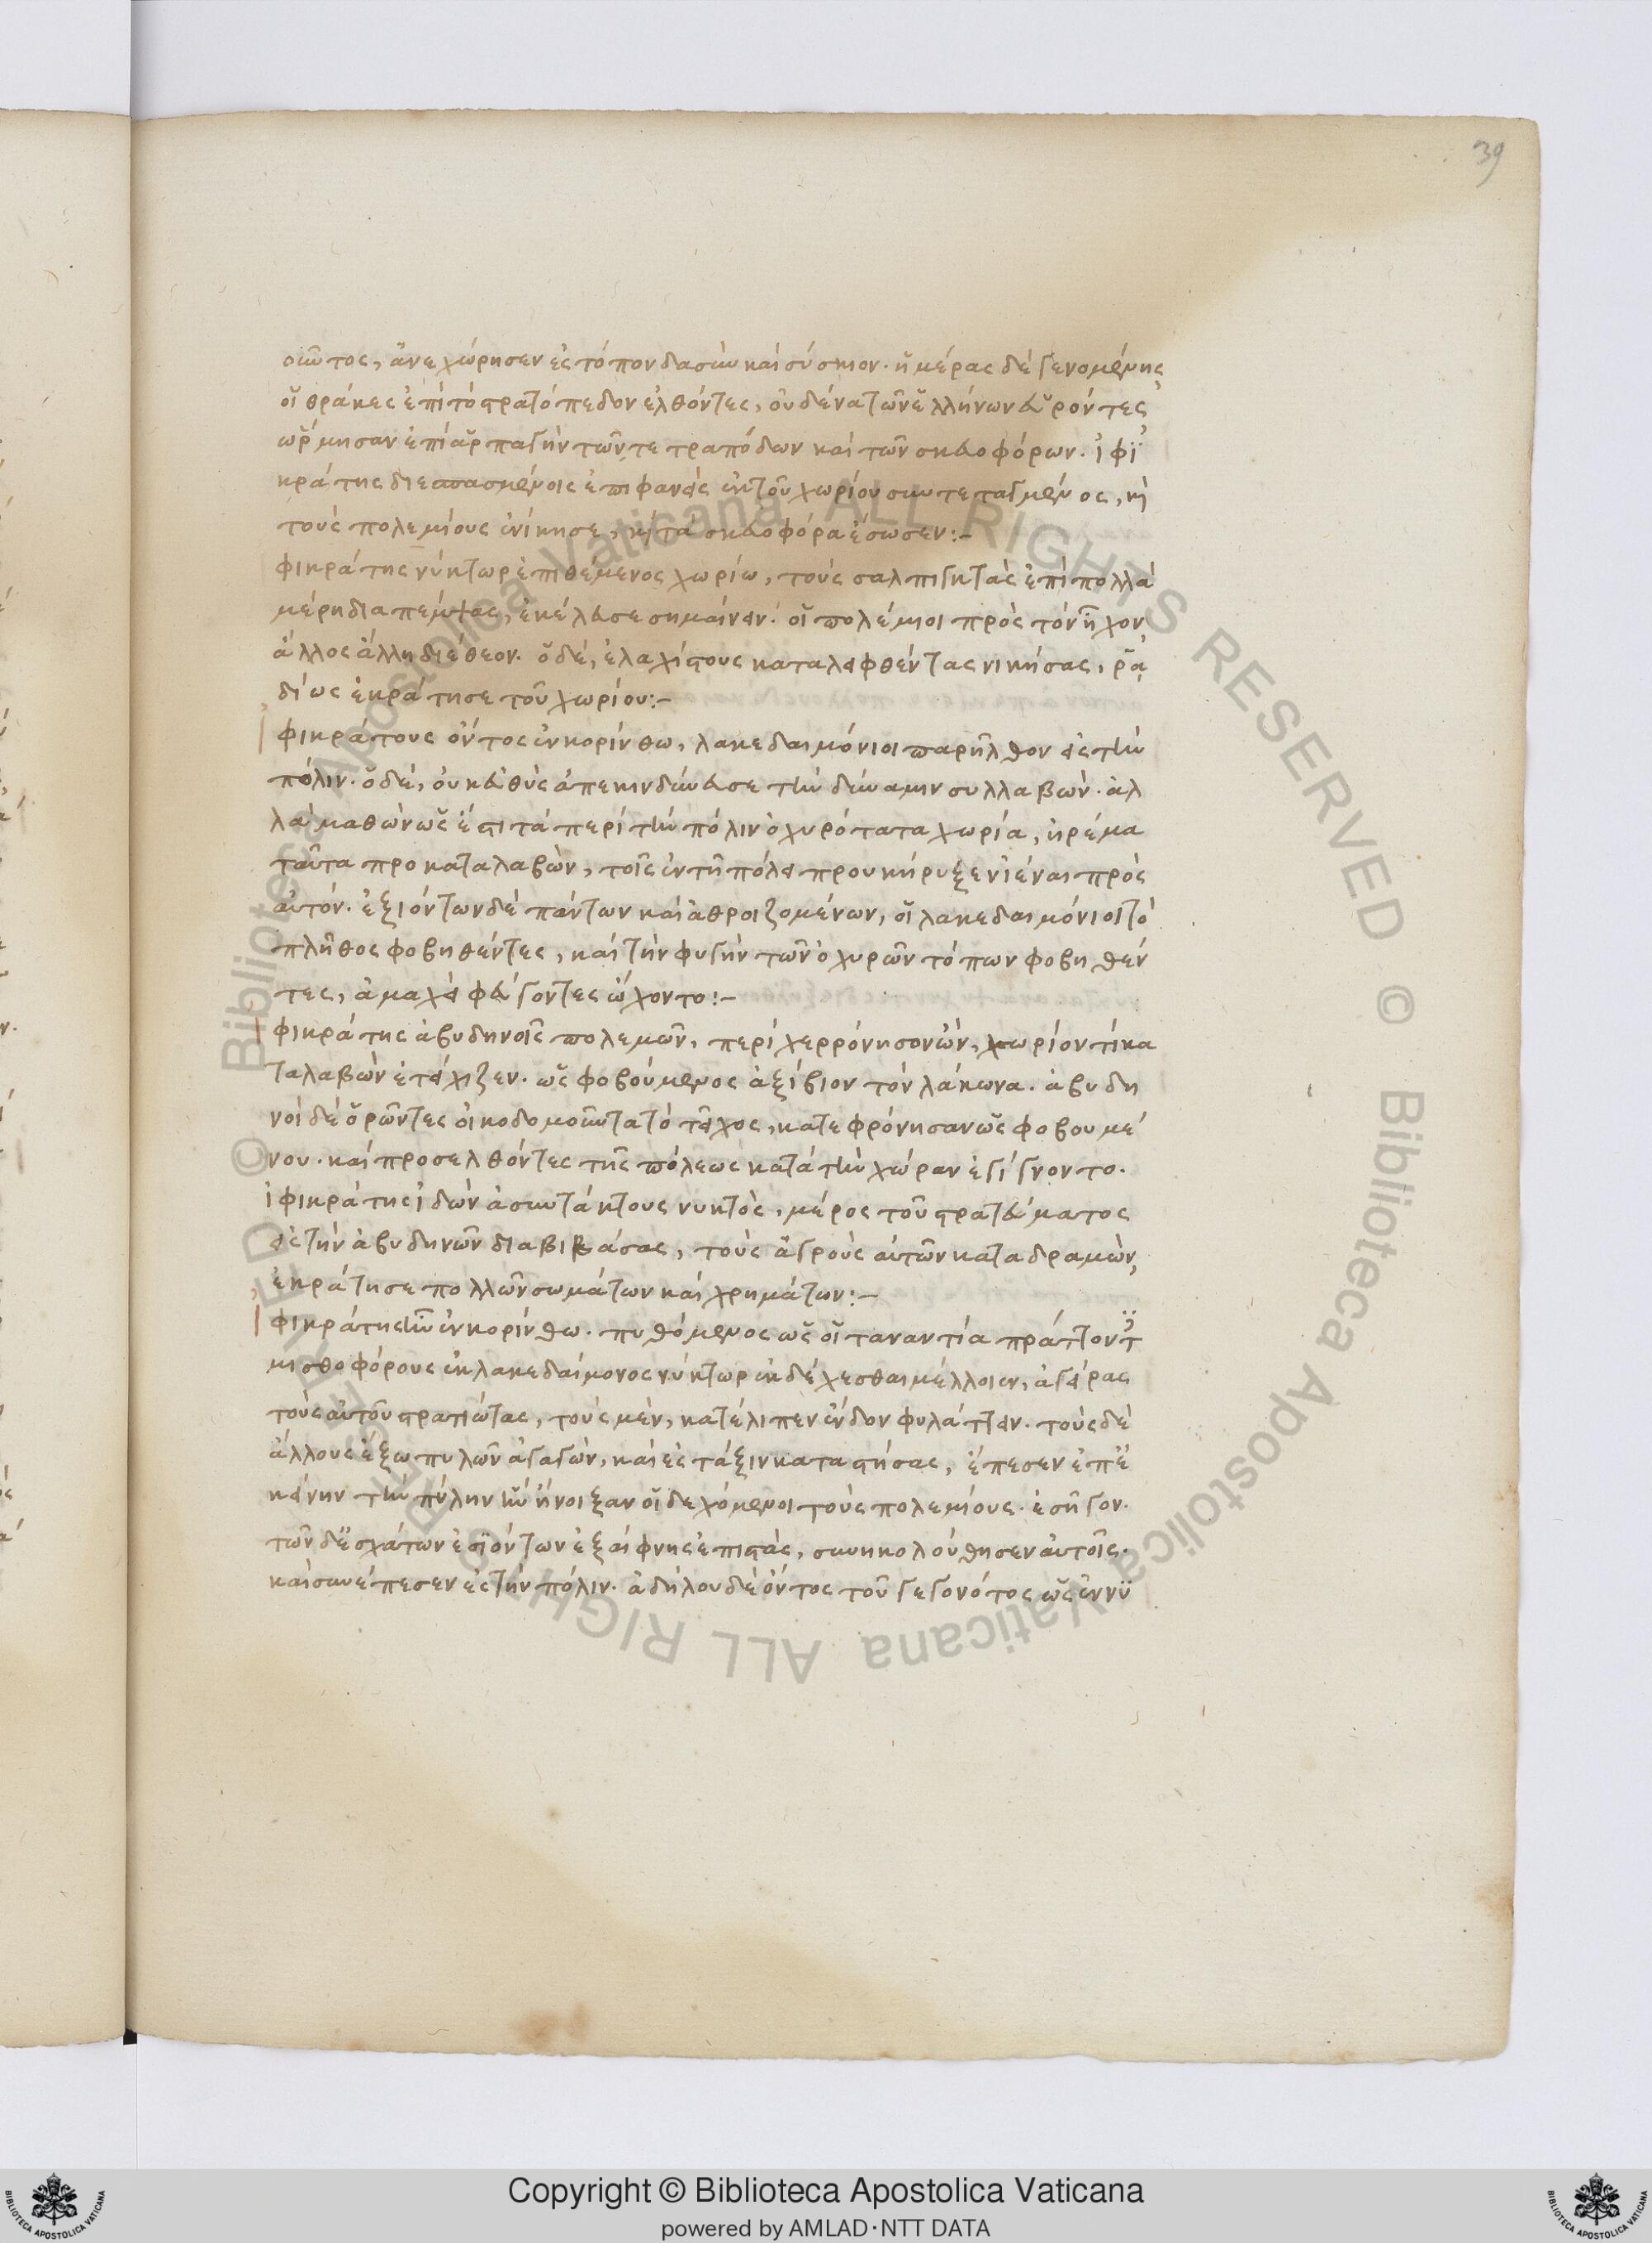 39
οῦντος, ἀνεχώρησεν ἐς τόπον δασὺν καὶ σύσκιον. ἡμέρας δὲ γενομένης
οἱ θρᾶκες ἐπὶ τὸ στρατόπεδον ἐλθόντες, οὐδένα τῶν ἑλλήνων εὑρόντες
ὥρμησαν ἐπὶ ἁρπαγὴν τῶν τετραπόδων καὶ τῶν σκευοφόρων. ἰφι
κράτης διεσπασμένοις ἐπιφανεὶς ἐκ τοῦ χωρίου συντεταγμένος, καὶ
τοὺς πολεμίους ἐνίκησε, καὶ τὰ σκευοφόρα ἔσωσεν:-
φικράτης νύκτωρ ἐπιθέμενος χωρίω, τοὺς σαλπιγκτὰς ἐπὶ πολλὰ
μέρη διαπέμψας, ἐκέλευσε σημαίνειν. οἱ πολέμιοι πρὸς τὸν ἦχον
ἄλλος ἄλλη διέθεον. ὁ δὲ, ἐλαχίστους καταλειφθέντας νικήσας, ρα
δίως ἐκράτησε τοῦ χωρίου:-
φικράτους ὄντος ἐν κορίνθω, λακεδαιμόνιοι παρῆλθον εἰς τὴν
πόλιν. ὁ δὲ, οὐκ εὐθὺς ἀπεκινδύνευσε τὴν δύναμιν συλλαβών. ἀλ
λὰ μαθὼν ὡς ἔστι τὰ περὶ τὴν πόλιν ὀχυρότατα χωρία, ἠρέμα
ταῦτα προκαταλαβών, τοῖς ἐν τῆ πόλει προυκήρυξεν ἰέναι πρὸς
αὐτόν. ἐξιόντων δὲ πάντων καὶ ἀθροιζομένων, οἱ λακεδαιμόνιοι τὸ
πλῆθος φοβηθέντες, καὶ τὴν φυγὴν τῶν ὀχυρῶν τόπων φοβηθέν
τες, ἀμαχεὶ φεύγοντες ᾤχοντο:-
φικράτης ἀβυδηνοῖς πολεμῶν, περὶ χερρόνησον ὤν, χωρίον τι κα
ταλαβὼν ἐτείχιζεν. ὡς φοβούμενος ἀξίβιον τὸν λάκωνα. ἀβυδη
νοὶ δὲ ὁρῶντες οἰκοδομοῦντα τὸ τεῖχος, κατεφρόνησαν ὡς φοβουμέ
νου. καὶ προσελθόντες τῆς πόλεως κατὰ τὴν χώραν ἐγίγνοντο.
ἰφικράτης ἰδὼν ἀσυντάκτους νυκτὸς, μέρος τοῦ στρατεύματος
εἰς τὴν ἀβυδηνῶν διαβιβάσας, τοὺς ἀγροὺς αὐτῶν καταδραμὼν,
ἐκράτησε πολλῶν σωμάτων καὶ χρημάτων:-
φικράτης ἦν ἐν κορίνθω. πυθόμενος ὡς οἱ ταναντία πράττοντ
μισθοφόρους ἐκ λακεδαίμονος νύκτωρ ἐκδέχεσθαι μέλλοιεν, ἀγείρας
τοὺς αὐτοῦ στρατιώτας, τοὺς μὲν, κατέλιπεν ἔνδον φυλάττειν. τοὺς δὲ
ἄλλους ἔξω πυλῶν ἀγαγὼν, καὶ ἐς τάξιν καταστήσας, ἔπεσεν ἐπ' ἐ
κείνην τὴν πύλην ἣν ἤνοιξαν οἱ δεχόμενοι τοὺς πολεμίους. ἐσῆγον.
τῶν δ' ἐσχάτων ἐσϊόντων ἐξαίφνης ἐπιστὰς, συνηκολούθησεν αὐτοῖς.
καὶ συνέπεσεν ἐς τὴν πόλιν. ἀδήλου δὲ ὄντος τοῦ γεγονότος ὡς ἐν νυ
© Biblioteca Apostolica Vaticana ALL RIGHTS RESERVED © Biblioteca Apostolica Vaticana ALL RIGHTS RESERVED
Copyright © Biblioteca Apostolica Vaticana
powered by AMLAD·NTT DATA
BIBLIOTECA APOSTOLICA VATICANA
BIBLIOTECA APOSTOLICA VATICANA